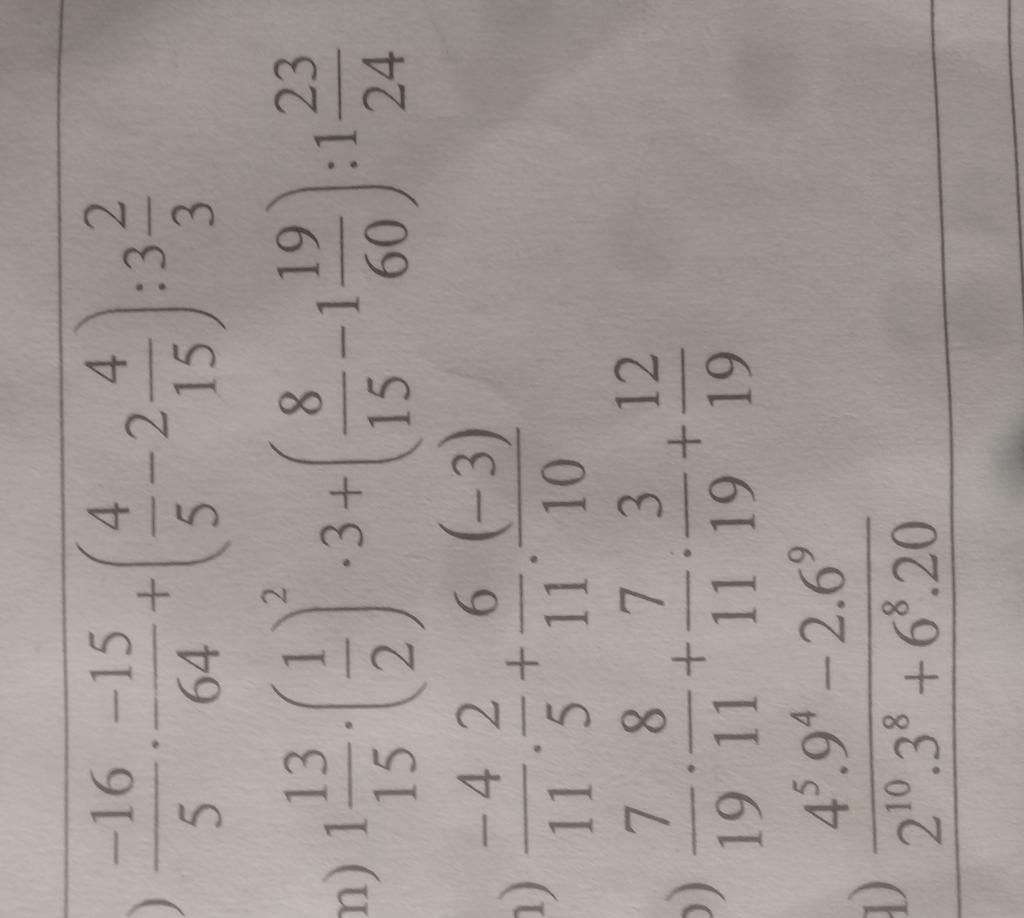 ) \frac{-16}{5} . \frac{-15}{64} + \left( \frac{4}{5} - 2\frac{4}{15} \right) : 3\frac{2}{3}
m) 1\frac{13}{15} . \left( \frac{1}{2} \right)^2 . 3 + \left( \frac{8}{15} - 1\frac{19}{60} \right) : 1\frac{23}{24}
) \frac{-4}{11} . \frac{2}{5} + \frac{6}{11} . \frac{(-3)}{10}
) \frac{7}{19} . \frac{8}{11} + \frac{7}{11} . \frac{3}{19} + \frac{12}{19}
) \frac{4^5.9^4 - 2.6^9}{2^{10}.3^8 + 6^8.20}